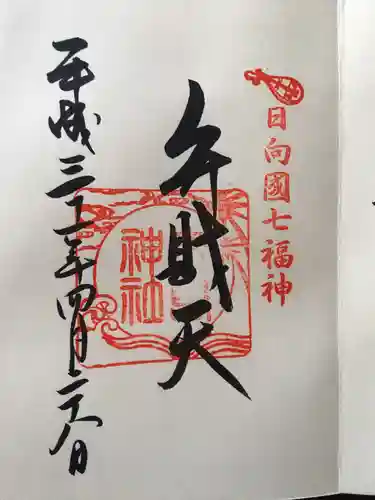 日向國七福神
弁財天
神社
平成三十一年四月二十八日